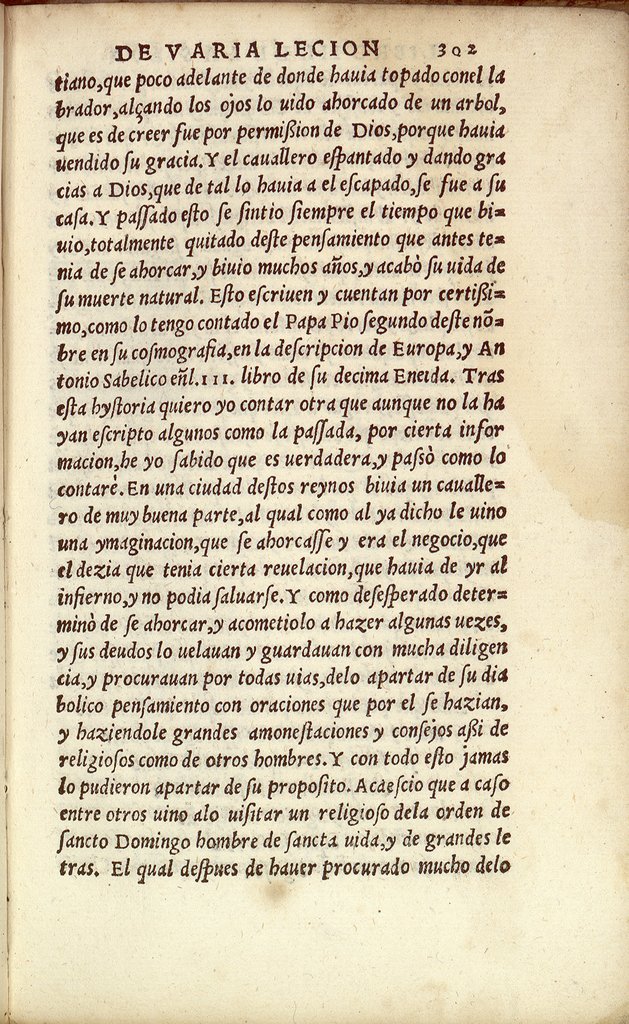 DE VARIA LECION 302
tiano,que poco adelante de donde hauia topado conel la
brador,alçando los ojos lo uido ahorcado de un arbol,
que es de creer fue por permißion de Dios,porque hauia
uendido ſu gracia.Y el cauallero eſpantado y dando gra
cias a Dios,que de tal lo hauia a el eſcapado,ſe fue a ſu
caſa.Y paſſado eſto se ſintio ſiempre el tiempo que bi=
uio,totalmente quitado deſte penſamiento que antes te=
nia de ſe ahorcar,y biuio muchos años,y acabò ſu uida de
ſu muerte natural. Eſto eſcriuen y cuentan por certißi=
mo,como lo tengo contado el Papa Pio ſegundo deſte nō=
bre en ſu coſmografia,en la deſcripcion de Europa,y An
tonio Sabelico eñl.III. libro de ſu decima Eneida. Tras
eſta hyſtoria quiero yo contar otra que aunque no la ha
yan eſcripto algunos como la paſſada, por cierta infor
macion,he yo ſabido que es uerdadera,y paſsò como lo
contarè.En una ciudad deſtos reynos biuia un caualle=
ro de muy buena parte,al qual como al ya dicho le uino
una ymaginacion,que ſe ahorcaſſe y era el negocio,que
el dezia que tenia cierta reuelacion,que hauia de yr al
infierno,y no podia ſaluarſe.Y como deſeſperado deter=
minò de ſe ahorcar,y acometiolo a hazer algunas uezes,
y ſus deudos lo uelauan y guardauan con mucha diligen
cia,y procurauan por todas uias,delo apartar de ſu dia
bolico penſamiento con oraciones que por el ſe hazian,
y haziendole grandes amoneſtaciones y conſejos aßi de
religioſos como de otros hombres.Y con todo eſto jamas
lo pudieron apartar de ſu propoſito. Acaeſcio que a caſo
entre otros uino alo uiſitar un religioſo dela orden de
ſancto Domingo hombre de ſancta uida,y de grandes le
tras. El qual deſpues de hauer procurado mucho delo